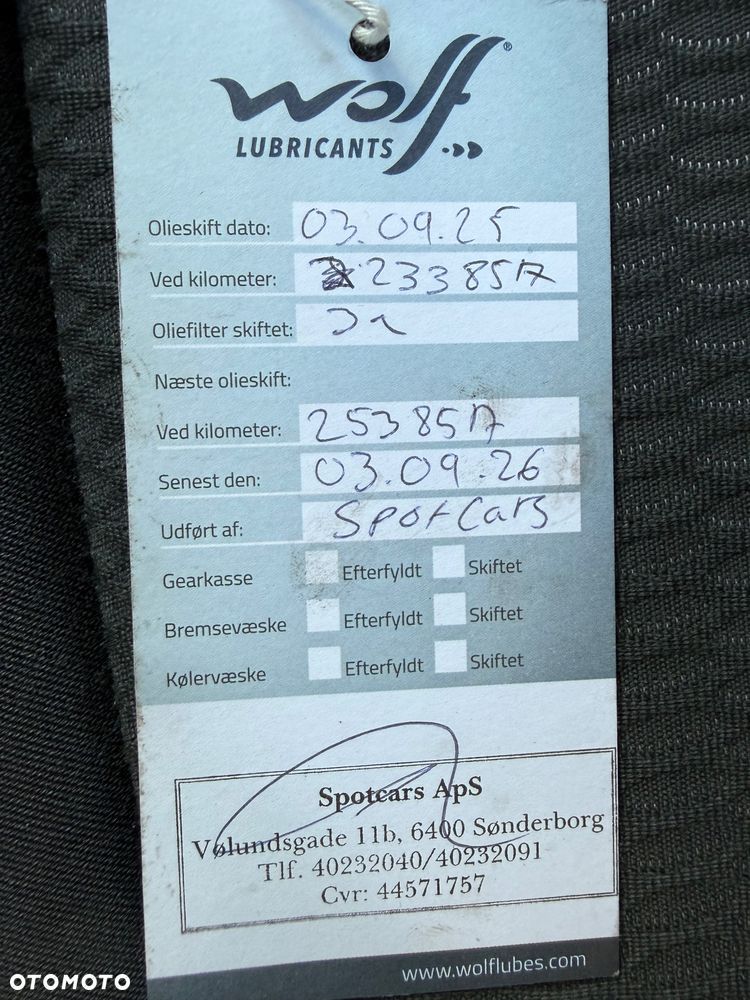 wolf®
LUBRICANTS
Olieskift dato: 03.09.25
Ved kilometer: 233857
Oliefilter skiftet: Ja
Næste olieskift:
Ved kilometer: 253857
Senest den: 03.09.26
Udført af: Spotcars
Gearkasse Efterfyldt Skiftet
Bremsevæske Efterfyldt Skiftet
Kølervæske Efterfyldt Skiftet
Spotcars ApS
Vølundsgade 11b, 6400 Sønderborg
Tlf. 40232040/40232091
Cvr: 44571757
www.wolflubes.com
OTOMOTO